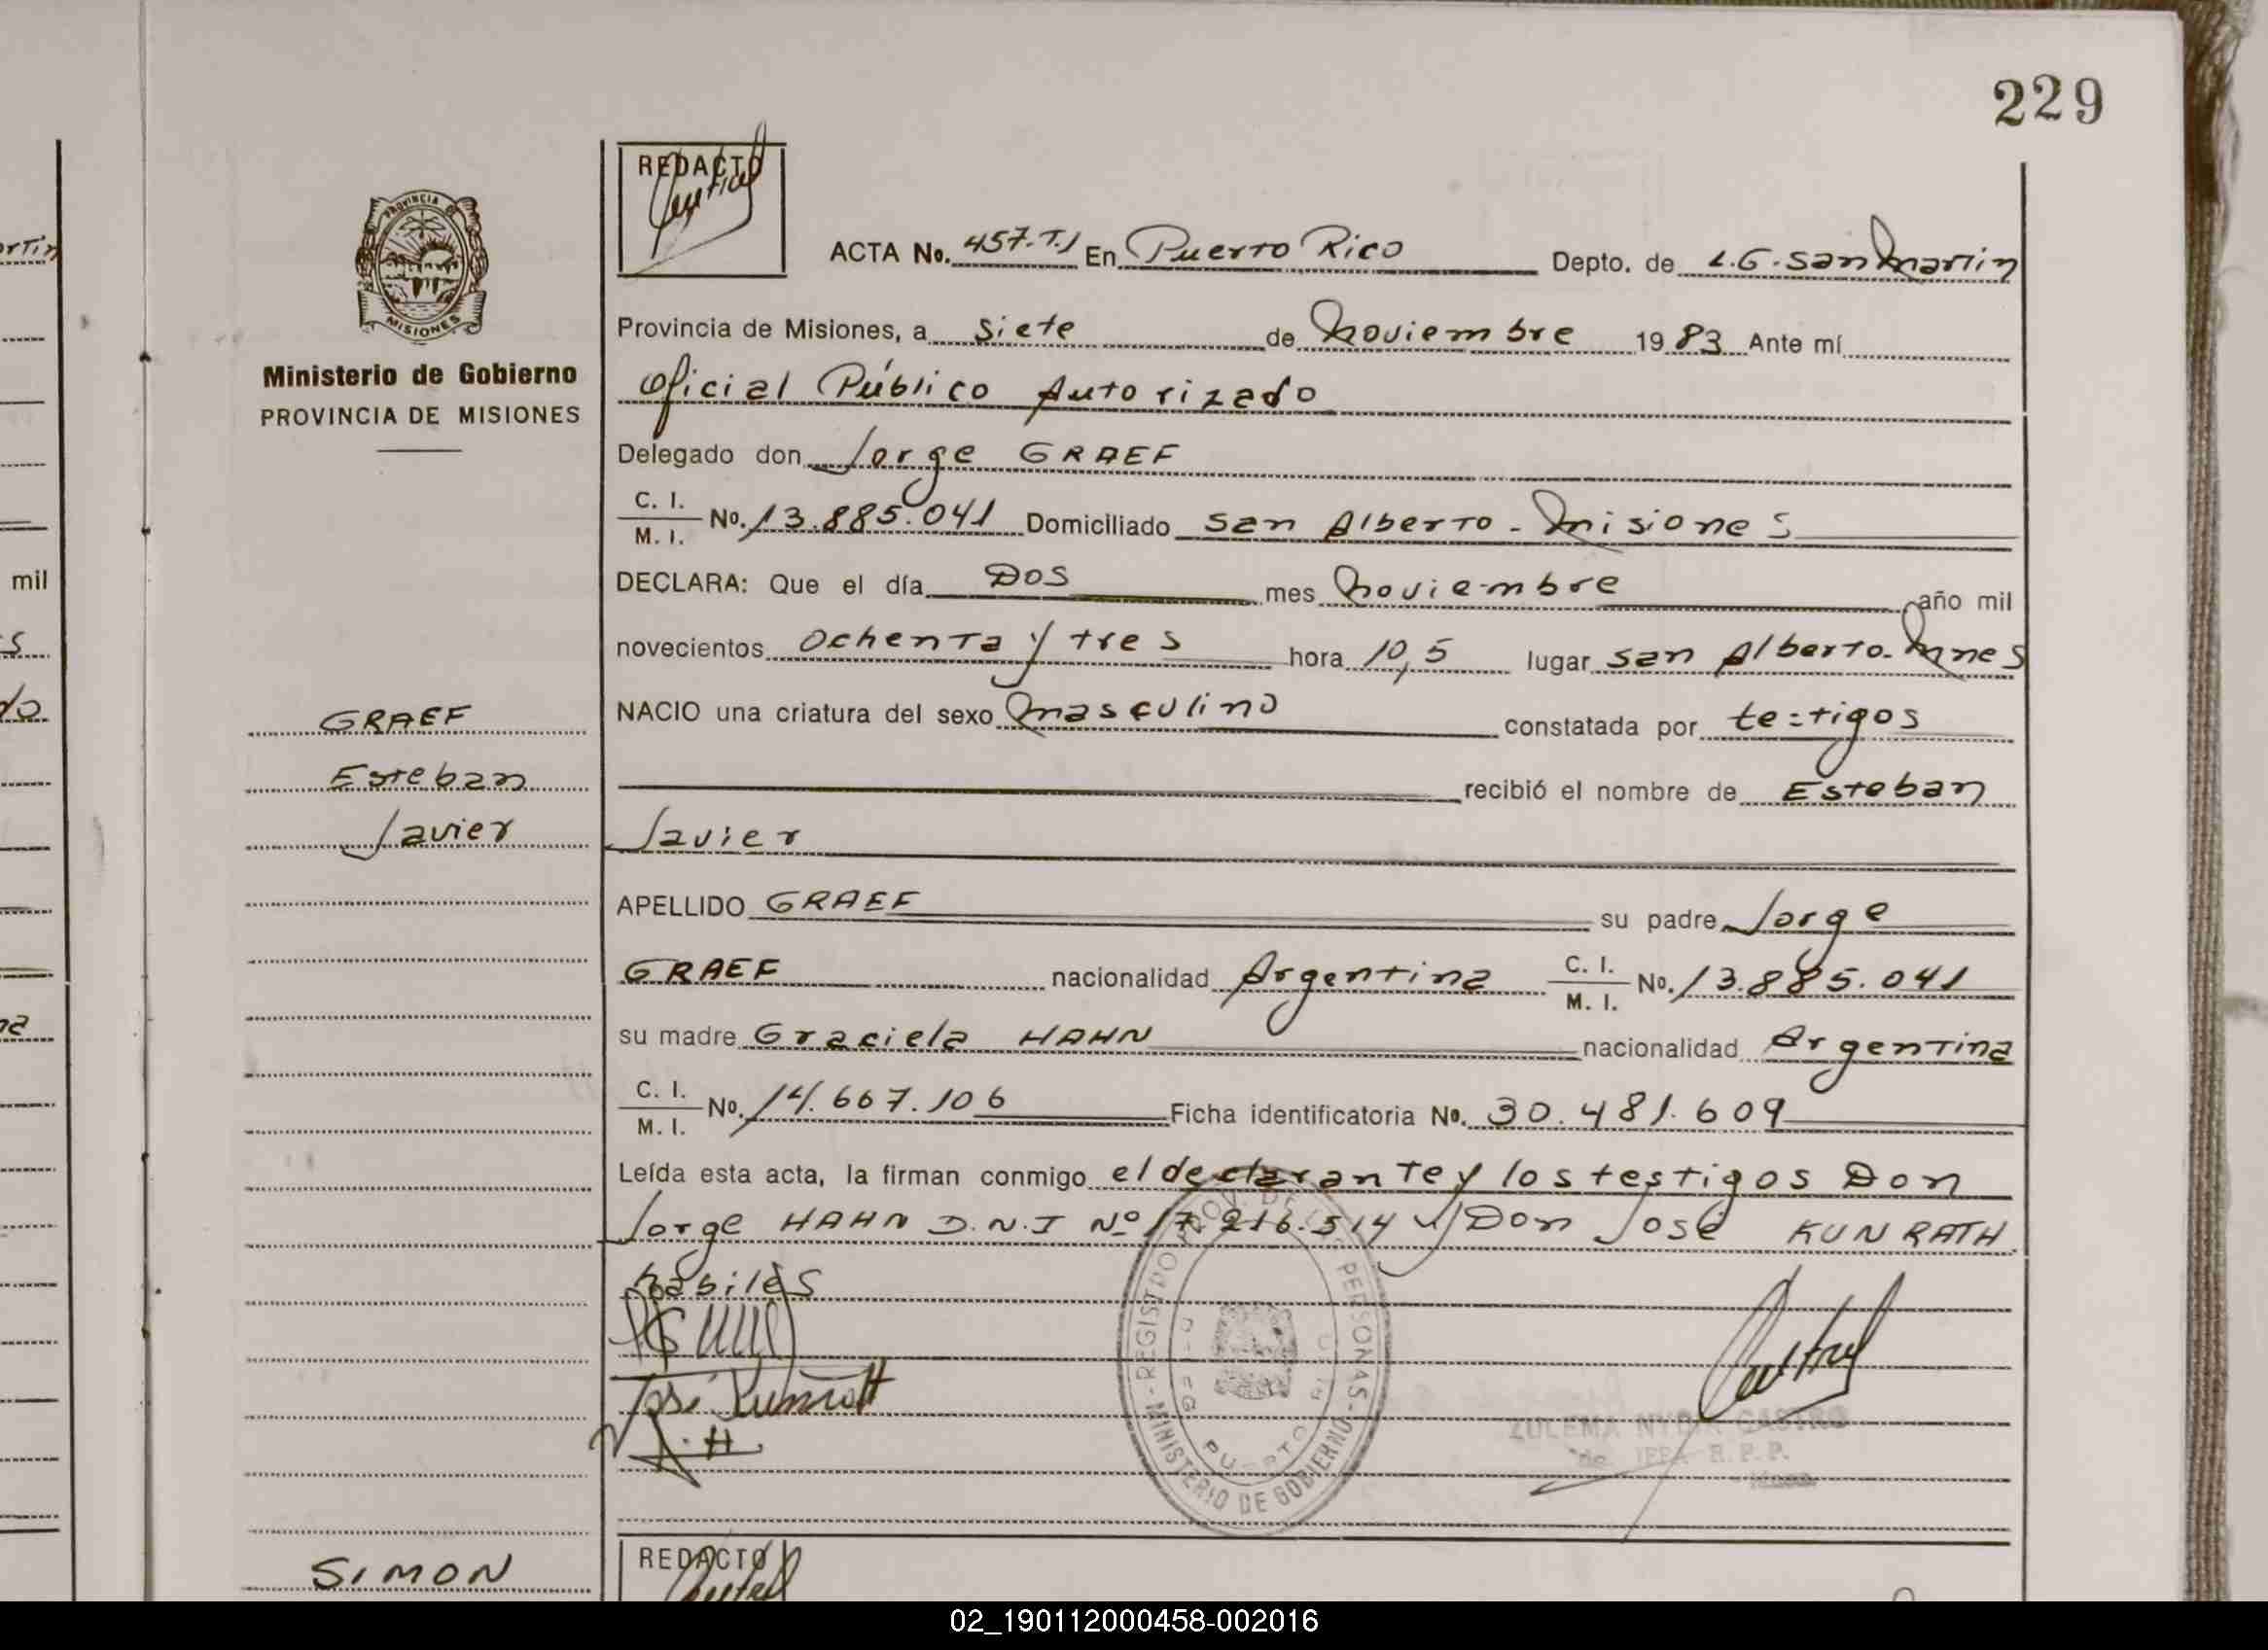 229
REDACTO
ACTA No. 457.T.I En Puerto Rico Depto. de L.G. San Martin
PROVINCIA DE
MISIONES
Ministerio de Gobierno
PROVINCIA DE MISIONES
Provincia de Misiones, a siete de Noviembre 1983 Ante mí
Oficial Público Autorizado
Delegado don Jorge GRAEF
C. I.
M. I. No. 13.885.041 Domiciliado San Alberto - Misiones
DECLARA: Que el día DOS mes Noviembre año mil
novecientos ochenta y tres hora 10,5 lugar San Alberto - Mnes
NACIO una criatura del sexo Masculino constatada por testigos
recibió el nombre de Esteban
Javier
APELLIDO GRAEF su padre Jorge
GRAEF nacionalidad Argentina C. I.
M. I. No. 13.885.041
su madre Graciela HAHN nacionalidad Argentina
C. I.
M. I. No. 14.667.106 Ficha identificatoria No. 30.481.609
Leída esta acta, la firman conmigo el declarante y los testigos Don
Jorge HAHN D.N.I Nº 17.216.514 y Don José KUNRATH
hábiles
GRAEF
Esteban
Javier
José Kunrath
J.H
REGISTRO PROV. DE LAS PERSONAS - MINISTERIO DE GOBIERNO
PUERTO RICO
ZULEMA NYDIA CASTRO
R.P.P.
SIMON
REDACTO
mil
02_190112000458-002016